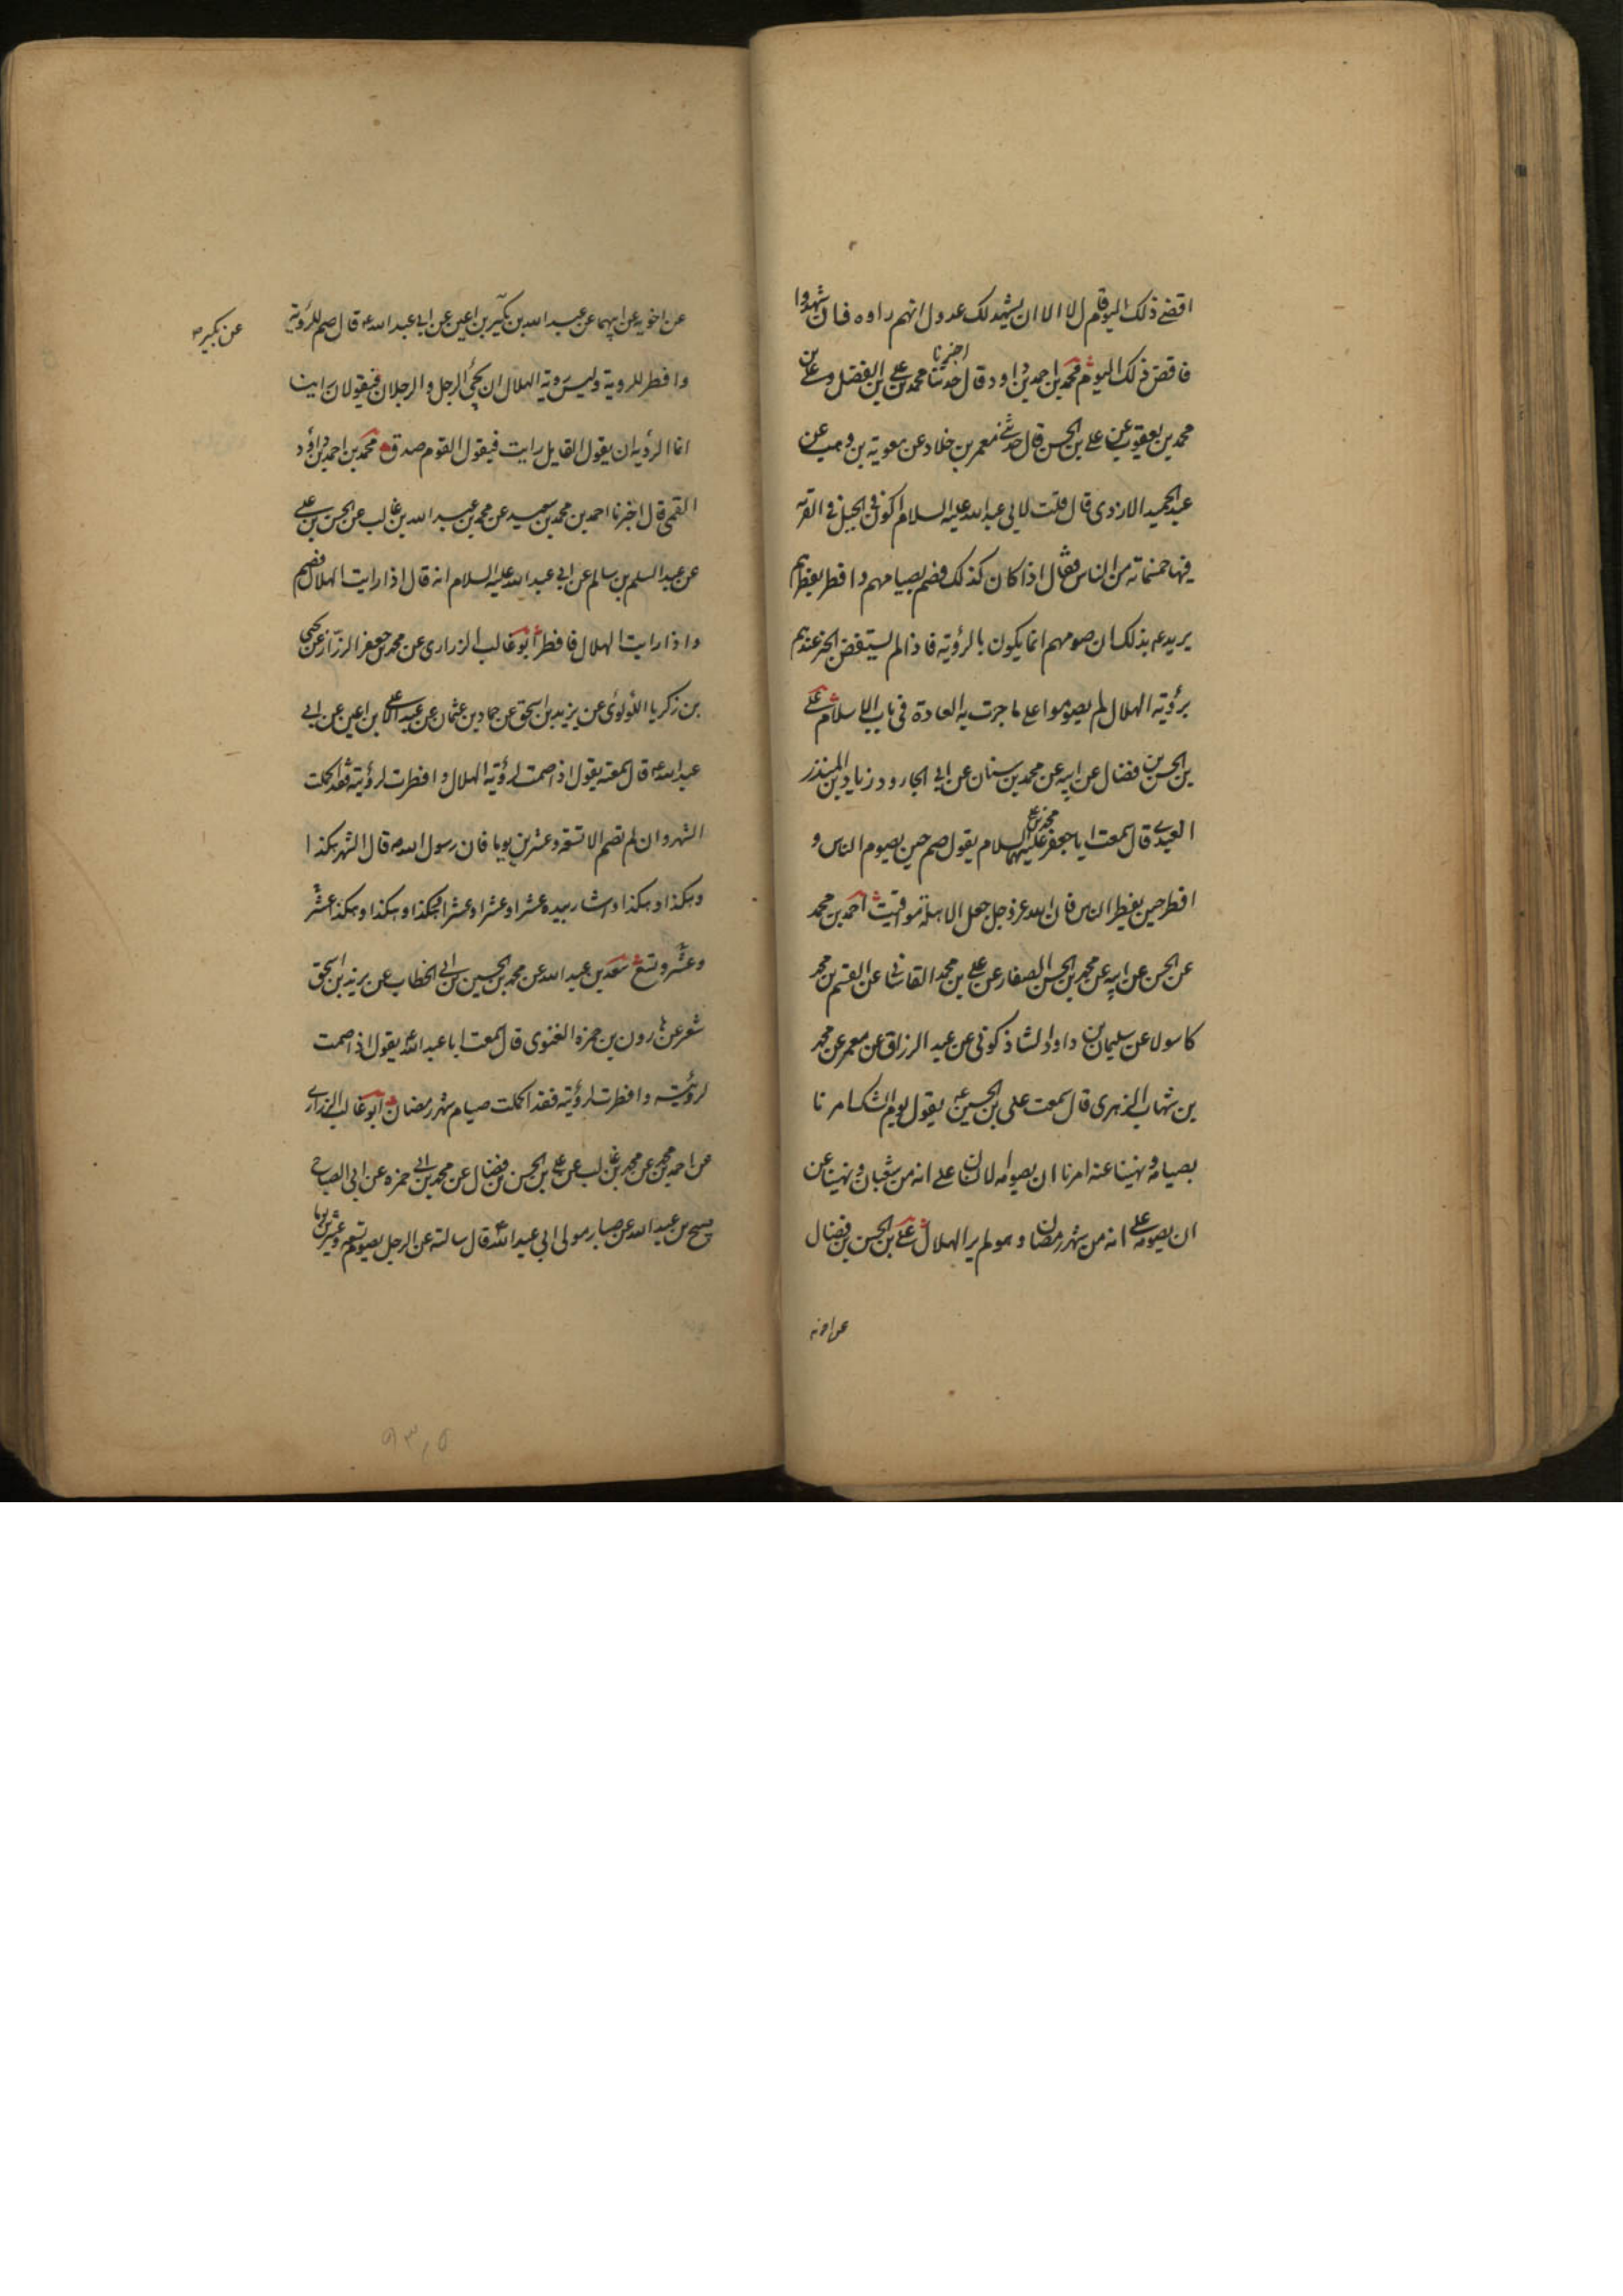 اقضے ذلک الیوم قال لا الا ان یشهد لک عدول انهم راوه فان شهدوا
فاقض ذلک الیوم محمد بن احمد بن داود قال حدثنا اخبرنا محمد بن علی بن الفضل و علی بن
محمد بن یعقوب عن علی بن الحسن قال حدثنے معمر بن خلاد عن معویة بن وهب عن
عبد الحمید الازدی قال قلت لابی عبد الله علیه السلام اکون فی الجبل فی القریة
فیها خمسمائة من الناس فقال اذا کان کذلک فصم بصیامهم و افطر بفطرهم
یرید عه بذلک ان صومهم انما یکون بالرؤیة فاذا لم یستفض الخبر عندهم
برؤیة الهلال لم یصوموا علی ما جرت به العادة فی باب الاسلام علی
بن الحسن بن فضال عن ابیه عن محمد بن سنان عن ابی الجارود زیاد بن المنذر
العبدے قال سمعت ابا جعفر محمد بن علی علیهما السلام یقول صم حین یصوم الناس و
افطر حین یفطر الناس فان الله عز و جل جعل الاهلة مواقیت احمد بن محمد
عن الحسن عن ابیه عن محمد بن الحسن الصفار عن علی بن محمد القاشانی عن القسم بن محمد
کاسولا عن سلیمان بن داود الشاذکونی عن عبد الرزاق عن معمر عن محمد
بن شهاب الزهری قال سمعت علی بن الحسین عه یقول یوم الشک امرنا
بصیامه و نهینا عنه امرنا ان یصومه الانسان علی انه من شعبان و نهینا عن
ان یصومه علی انه من شهر رمضان و هو لم یر الهلال علی بن الحسن بن فضال
عن اخویه
عن اخویه عن ابیهما عن عبد الله بن بکیر بن اعین عن ابی عبد الله عه قال صم للرؤیة
عن بکیر
و افطر للرویة و لیس رویة الهلال ان یجئ الرجل و الرجلان فیقولان راینا
انما الرؤیة ان یقول القایل رایت فیقول القوم صدق محمد بن احمد بن داود
القمی قال اخبرنا احمد بن محمد بن سعید عن محمد بن عبد الله بن غالب عن الحسن بن علی
عن عبد السلم بن سالم عن ابی عبد الله علیه السلام انه قال اذا رایت الهلال فصم
و اذا رایت الهلال فافطر ابو غالب الزراری عن محمد بن جعفر الرزاز عن یحیی
بن زکریا اللؤلوئی عن یزید بن اسحق عن حماد بن عثمان عن عبد الاعلی بن اعین عن ابی
عبد الله عه قال سمعته یقول اذا صمت لرؤیة الهلال و افطرت لرؤیته فقد اکملت
الشهر و ان لم تصم الا تسعة و عشرین یوما فان رسول الله صه قال الشهر هکذا
و هکذا و هکذا و اشار بیده عشرا و عشرا و عشرا و هکذا و هکذا و هکذا عشر
و عشر و تسع سعد بن عبد الله عن محمد بن الحسین بن ابی الخطاب عن یزید بن اسحق
شعر عن هارون بن حمزة الغنوی قال سمعت ابا عبد الله یقول اذا صمت
لرؤیته و افطرت لرؤیته فقد اکملت صیام شهر رمضان ابو غالب الزراری
عن احمد بن محمد عن محمد بن غالب عن علی بن الحسن بن فضال عن محمد بن ابی حمزة عن ابی الصباح
صبیح بن عبد الله عن صابر مولی ابی عبد الله قال سالته عن الرجل یصوم تسعة و عشرین یوما